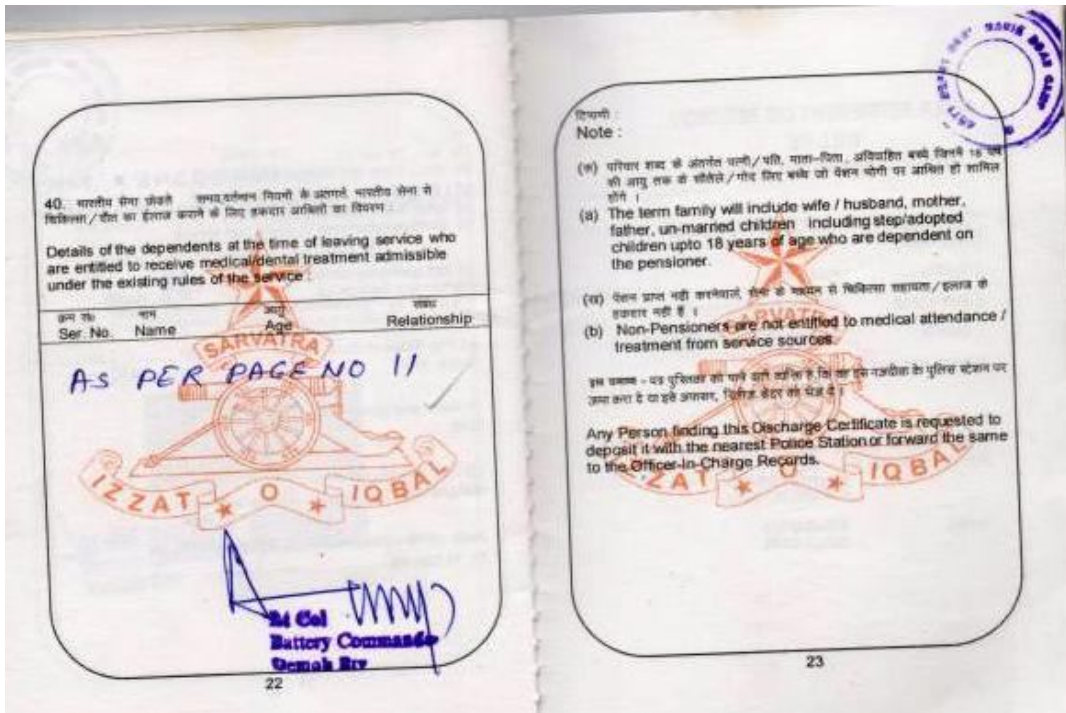 40. भारतीय सेना छोड़ते समय वर्तमान नियमों के अंतर्गत भारतीय सेना से
चिकित्सा / दाँत का ईलाज कराने के लिए हकदार आश्रितों का विवरण :
Details of the dependents at the time of leaving service who
are entitled to receive medical/dental treatment admissible
under the existing rules of the service :
क्रम सं० नाम आयु संबंध
Ser. No. Name Age Relationship
SARVATRA
AS PER PAGE NO 11
IZZAT O IQBAL
Lt Col
Battery Commander
Demob Bty
22
टिप्पणी :
Note :
(क) परिवार शब्द के अंतर्गत पत्नी / पति, माता-पिता, अविवाहित बच्चे जिनमें 18 वर्ष
की आयु तक के सौतेले / गोद लिए बच्चे जो पेंशन भोगी पर आश्रित हो शामिल
होंगे ।
(a) The term family will include wife / husband, mother,
father, un-married children including step/adopted
children upto 18 years of age who are dependent on
the pensioner.
(ख) पेंशन प्राप्त नही करनेवाले, सेना के माध्यम से चिकित्सा सहायता / इलाज के
हकदार नही हैं ।
(b) Non-Pensioners are not entitled to medical attendance /
treatment from service sources.
इस प्रमाण - पत्र पुस्तिका को पाने वाले व्यक्ति है, कि वह इसे नजदीक के पुलिस स्टेशन पर
जमा करा दे या इसे अफसर, रिकार्ड को भेज दें ।
Any Person finding this Discharge Certificate is requested to
deposit it with the nearest Police Station or forward the same
to the Officer-In-Charge Records.
SARVATRA
IZZAT O IQBAL
23